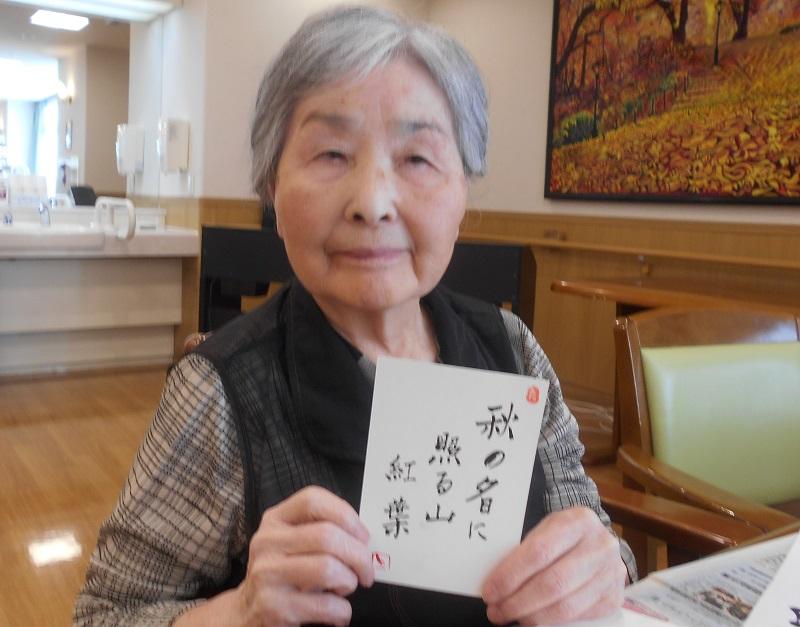 秋の夕日に
照る山
紅葉